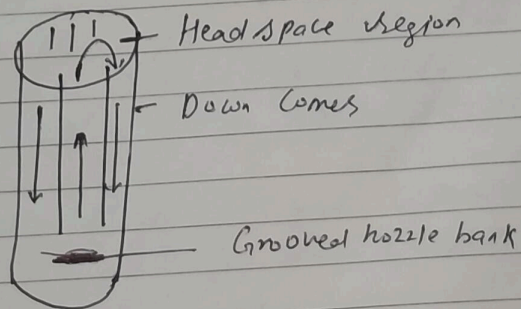 Head space region
Down Comes
Grooved nozzle bank